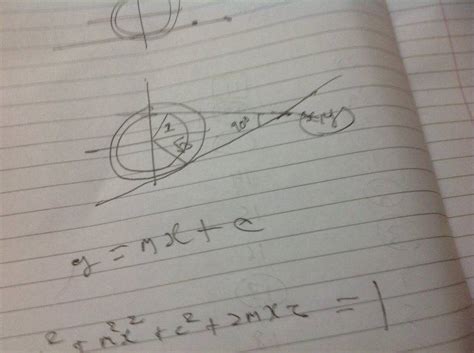 1
90°
y = mx + c
x² + m²x² + c² + 2mxc = 1